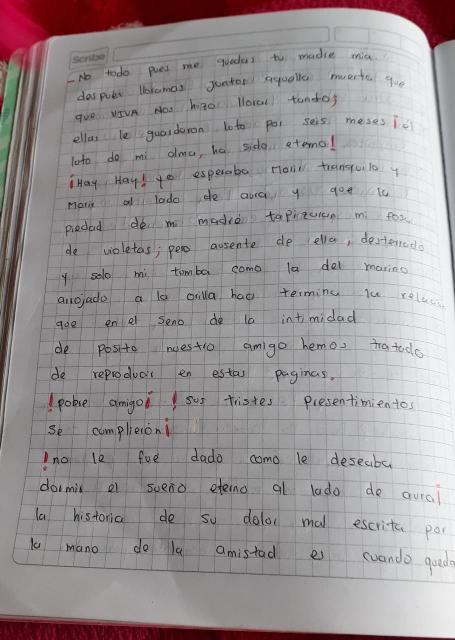 Scribe
- No todo pues me quedas tu madre mia
despues lloramos juntos aquella muerta que
que VIVA Nos hizo llorar tantos;
ellas le guardaron loto por seis meses ¡el
luto de mi alma, ha sido eterno!
¡Hay Hay! yo esperaba Morir tranquilo y
Morir al lado de aura y que la
piedad de mi madre tapizaran mi fosa
de violetas; pero ausente de ella, desterrado
y solo mi tumba como la del marino
arrojado a la orilla hao termina la relacion
que en el seno de la intimidad
de posito nuestro amigo hemos tratado
de reproducir en estas paginas.
!pobre amigo¡ !sus tristes presentimientos
se cumplieron¡
!no le fue dado como le deseaba
dormir el sueño eterno al lado de aura¡
la historia de su dolor mal escrita por
la mano de la amistad es cuando queda